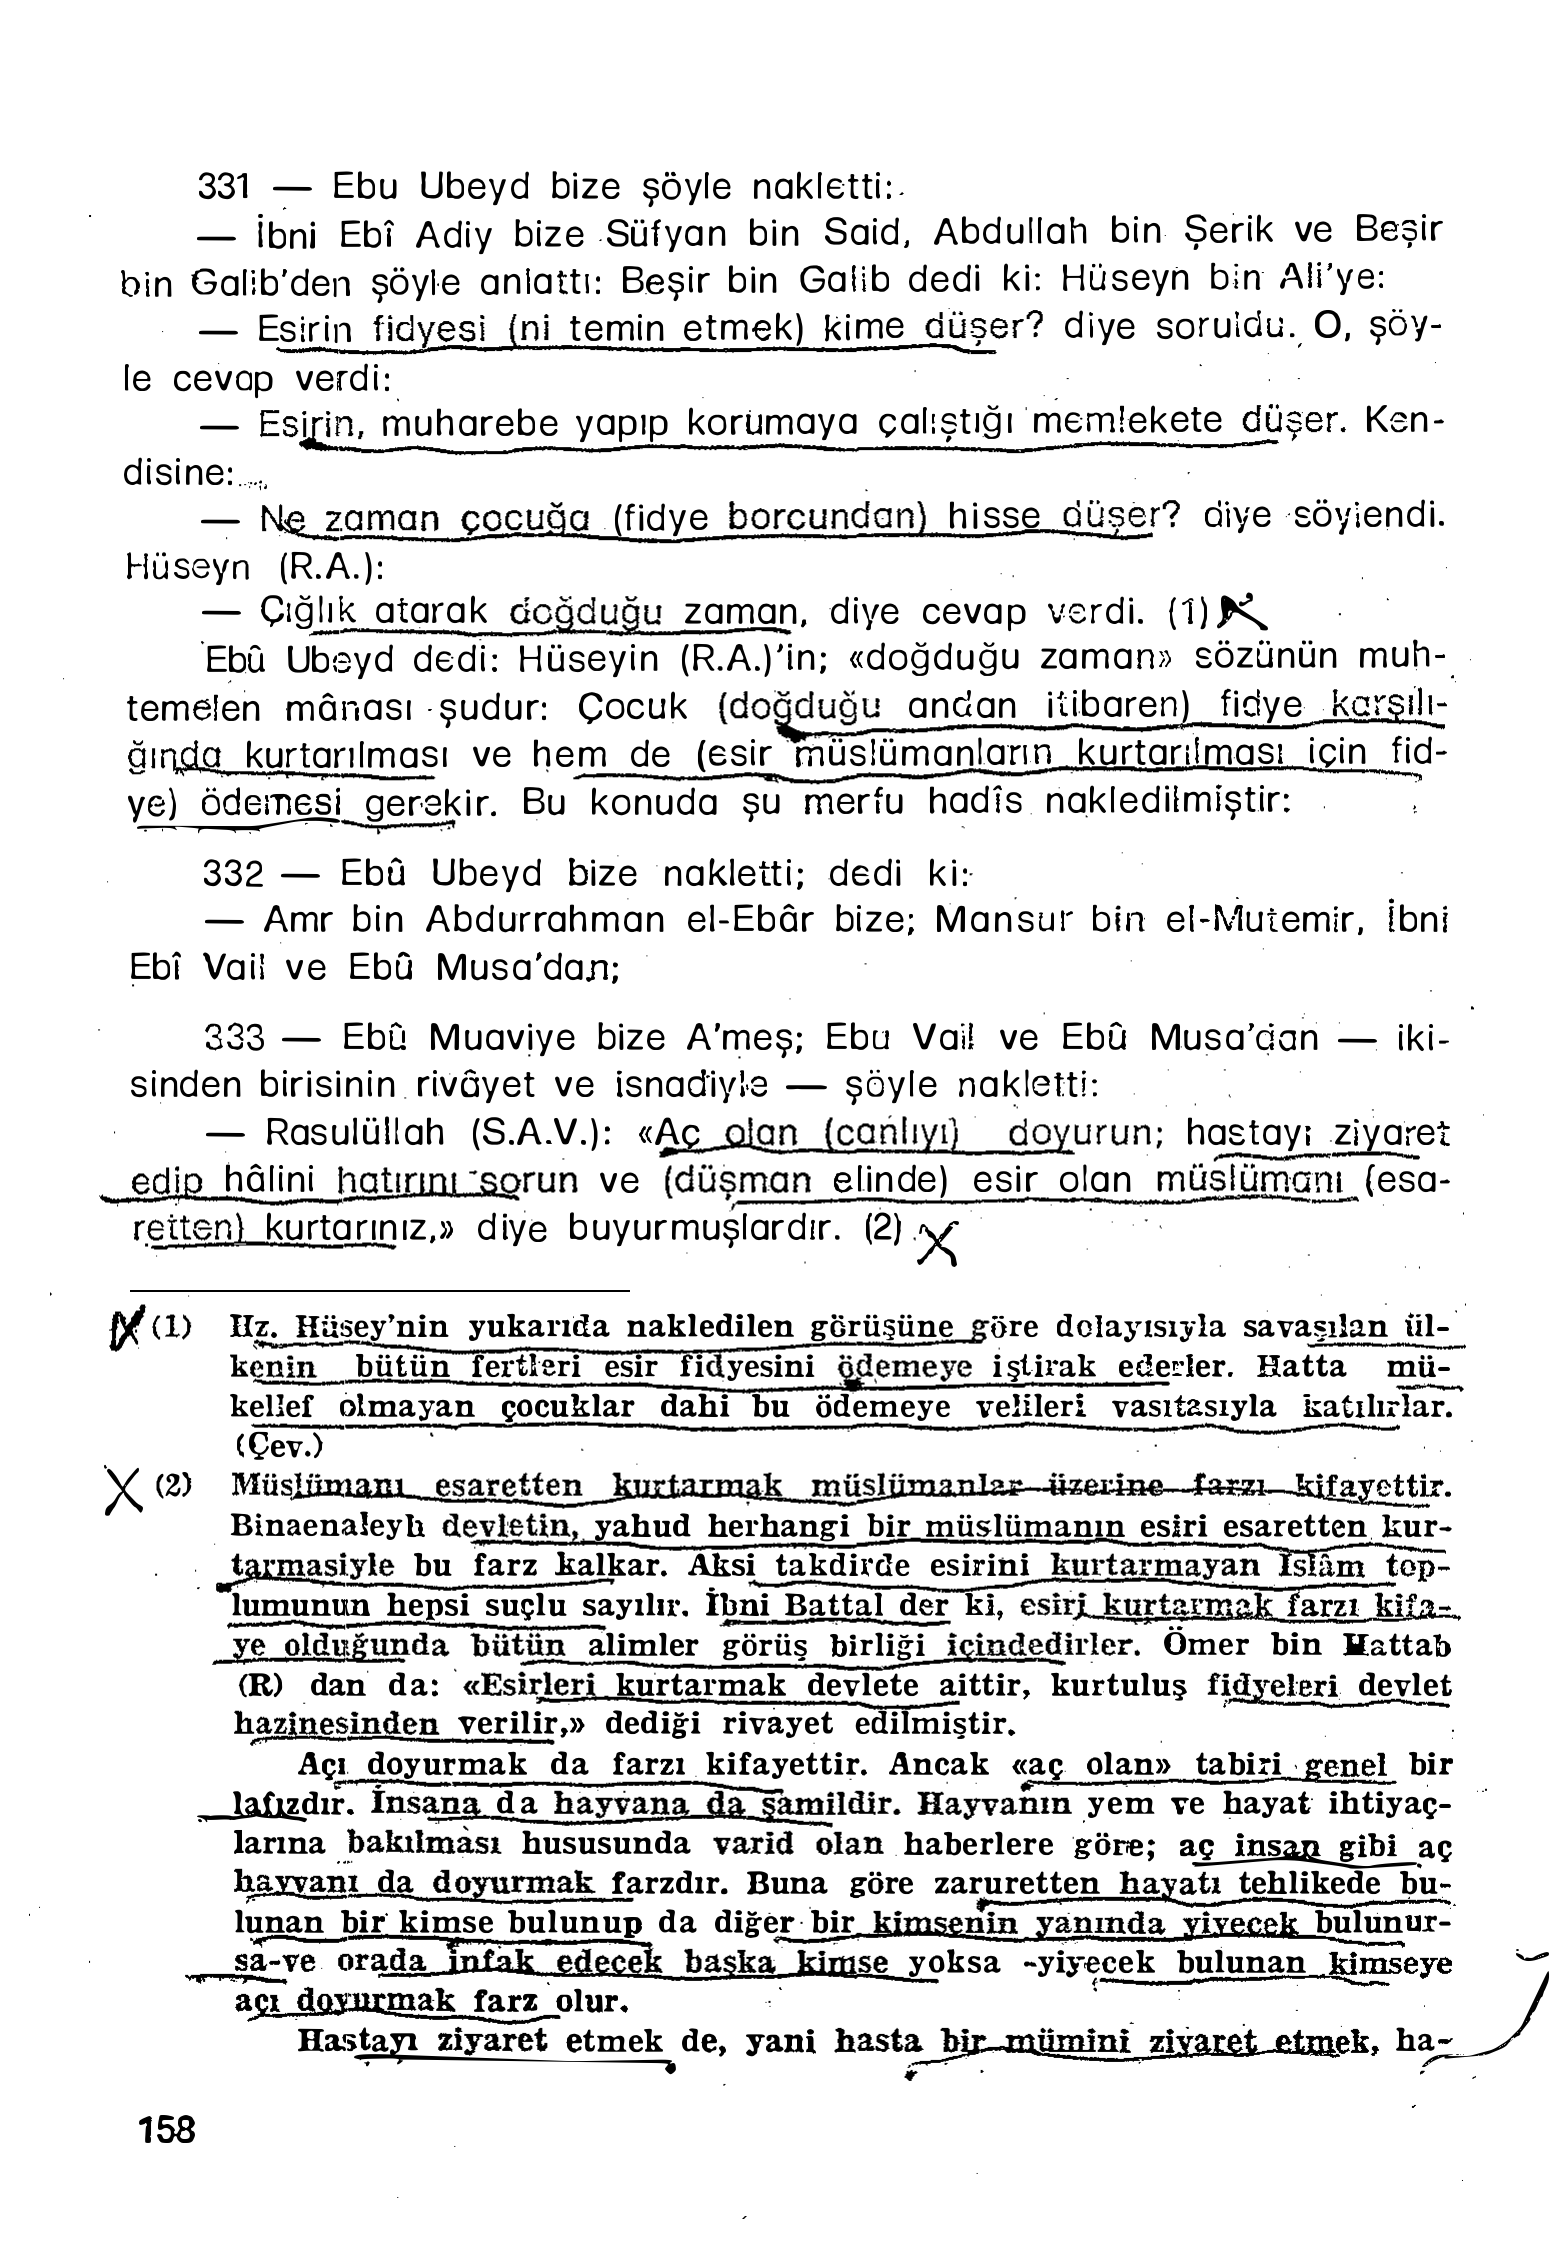 331 — Ebu Ubeyd bize şöyle nakletti:
— İbni Ebî Adiy bize Süfyan bin Said, Abdullah bin Şerik ve Beşir
bin Galib'den şöyle anlattı: Beşir bin Galib dedi ki: Hüseyn bin Ali'ye:
— Esirin fidyesi (ni temin etmek) kime düşer? diye soruldu. O, şöy-
le cevap verdi:
— Esirin, muharebe yapıp korumaya çalıştığı memlekete düşer. Ken-
disine:
— Ne zaman çocuğa (fidye borcundan) hisse düşer? diye söylendi.
Hüseyn (R.A.):
— Çığlık atarak doğduğu zaman, diye cevap verdi. (1)
Ebû Ubeyd dedi: Hüseyin (R.A.)'in; «doğduğu zaman» sözünün muh-
temelen mânası şudur: Çocuk (doğduğu andan itibaren) fidye karşılı-
ğında kurtarılması ve hem de (esir müslümanların kurtarılması için fid-
ye) ödemesi gerekir. Bu konuda şu merfu hadîs nakledilmiştir:
332 — Ebû Ubeyd bize nakletti; dedi ki:
— Amr bin Abdurrahman el-Ebâr bize; Mansur bin el-Mutemir, İbni
Ebî Vail ve Ebû Musa'dan;
333 — Ebû Muaviye bize A'meş; Ebu Vail ve Ebû Musa'dan — iki-
sinden birisinin rivâyet ve isnadiyle — şöyle nakletti:
— Rasulüllah (S.A.V.): «Aç olan (canlıyı) doyurun; hastayı ziyaret
edip hâlini hatırını sorun ve (düşman elinde) esir olan müslümanı (esa-
retten) kurtarınız,» diye buyurmuşlardır. (2)
(1) Hz. Hüsey'nin yukarıda nakledilen görüşüne göre dolayısıyla savaşılan ül-
kenin bütün fertleri esir fidyesini ödemeye iştirak ederler. Hatta mü-
kellef olmayan çocuklar dahi bu ödemeye velileri vasıtasıyla katılırlar.
(Çev.)
(2) Müslümanı esaretten kurtarmak müslümanlar üzerine farzı kifayettir.
Binaenaleyh devletin, yahud herhangi bir müslümanın esiri esaretten kur-
tarmasiyle bu farz kalkar. Aksi takdirde esirini kurtarmayan İslâm top-
lumunun hepsi suçlu sayılır. İbni Battal der ki, esiri kurtarmak farzı kifa-
ye olduğunda bütün alimler görüş birliği içindedirler. Ömer bin Hattab
(R) dan da: «Esirleri kurtarmak devlete aittir, kurtuluş fidyeleri devlet
hazinesinden verilir,» dediği rivayet edilmiştir.
Açı doyurmak da farzı kifayettir. Ancak «aç olan» tabiri genel bir
lafızdır. İnsana da hayvana da şamildir. Hayvanın yem ve hayat ihtiyaç-
larına bakılması hususunda varid olan haberlere göre; aç insan gibi aç
hayvanı da doyurmak farzdır. Buna göre zaruretten hayatı tehlikede bu-
lunan bir kimse bulunup da diğer bir kimsenin yanında yiyecek bulunur-
sa-ve orada infak edecek başka kimse yoksa -yiyecek bulunan kimseye
açı doyurmak farz olur.
Hastayı ziyaret etmek de, yani hasta bir mümini ziyaret etmek, ha-
158